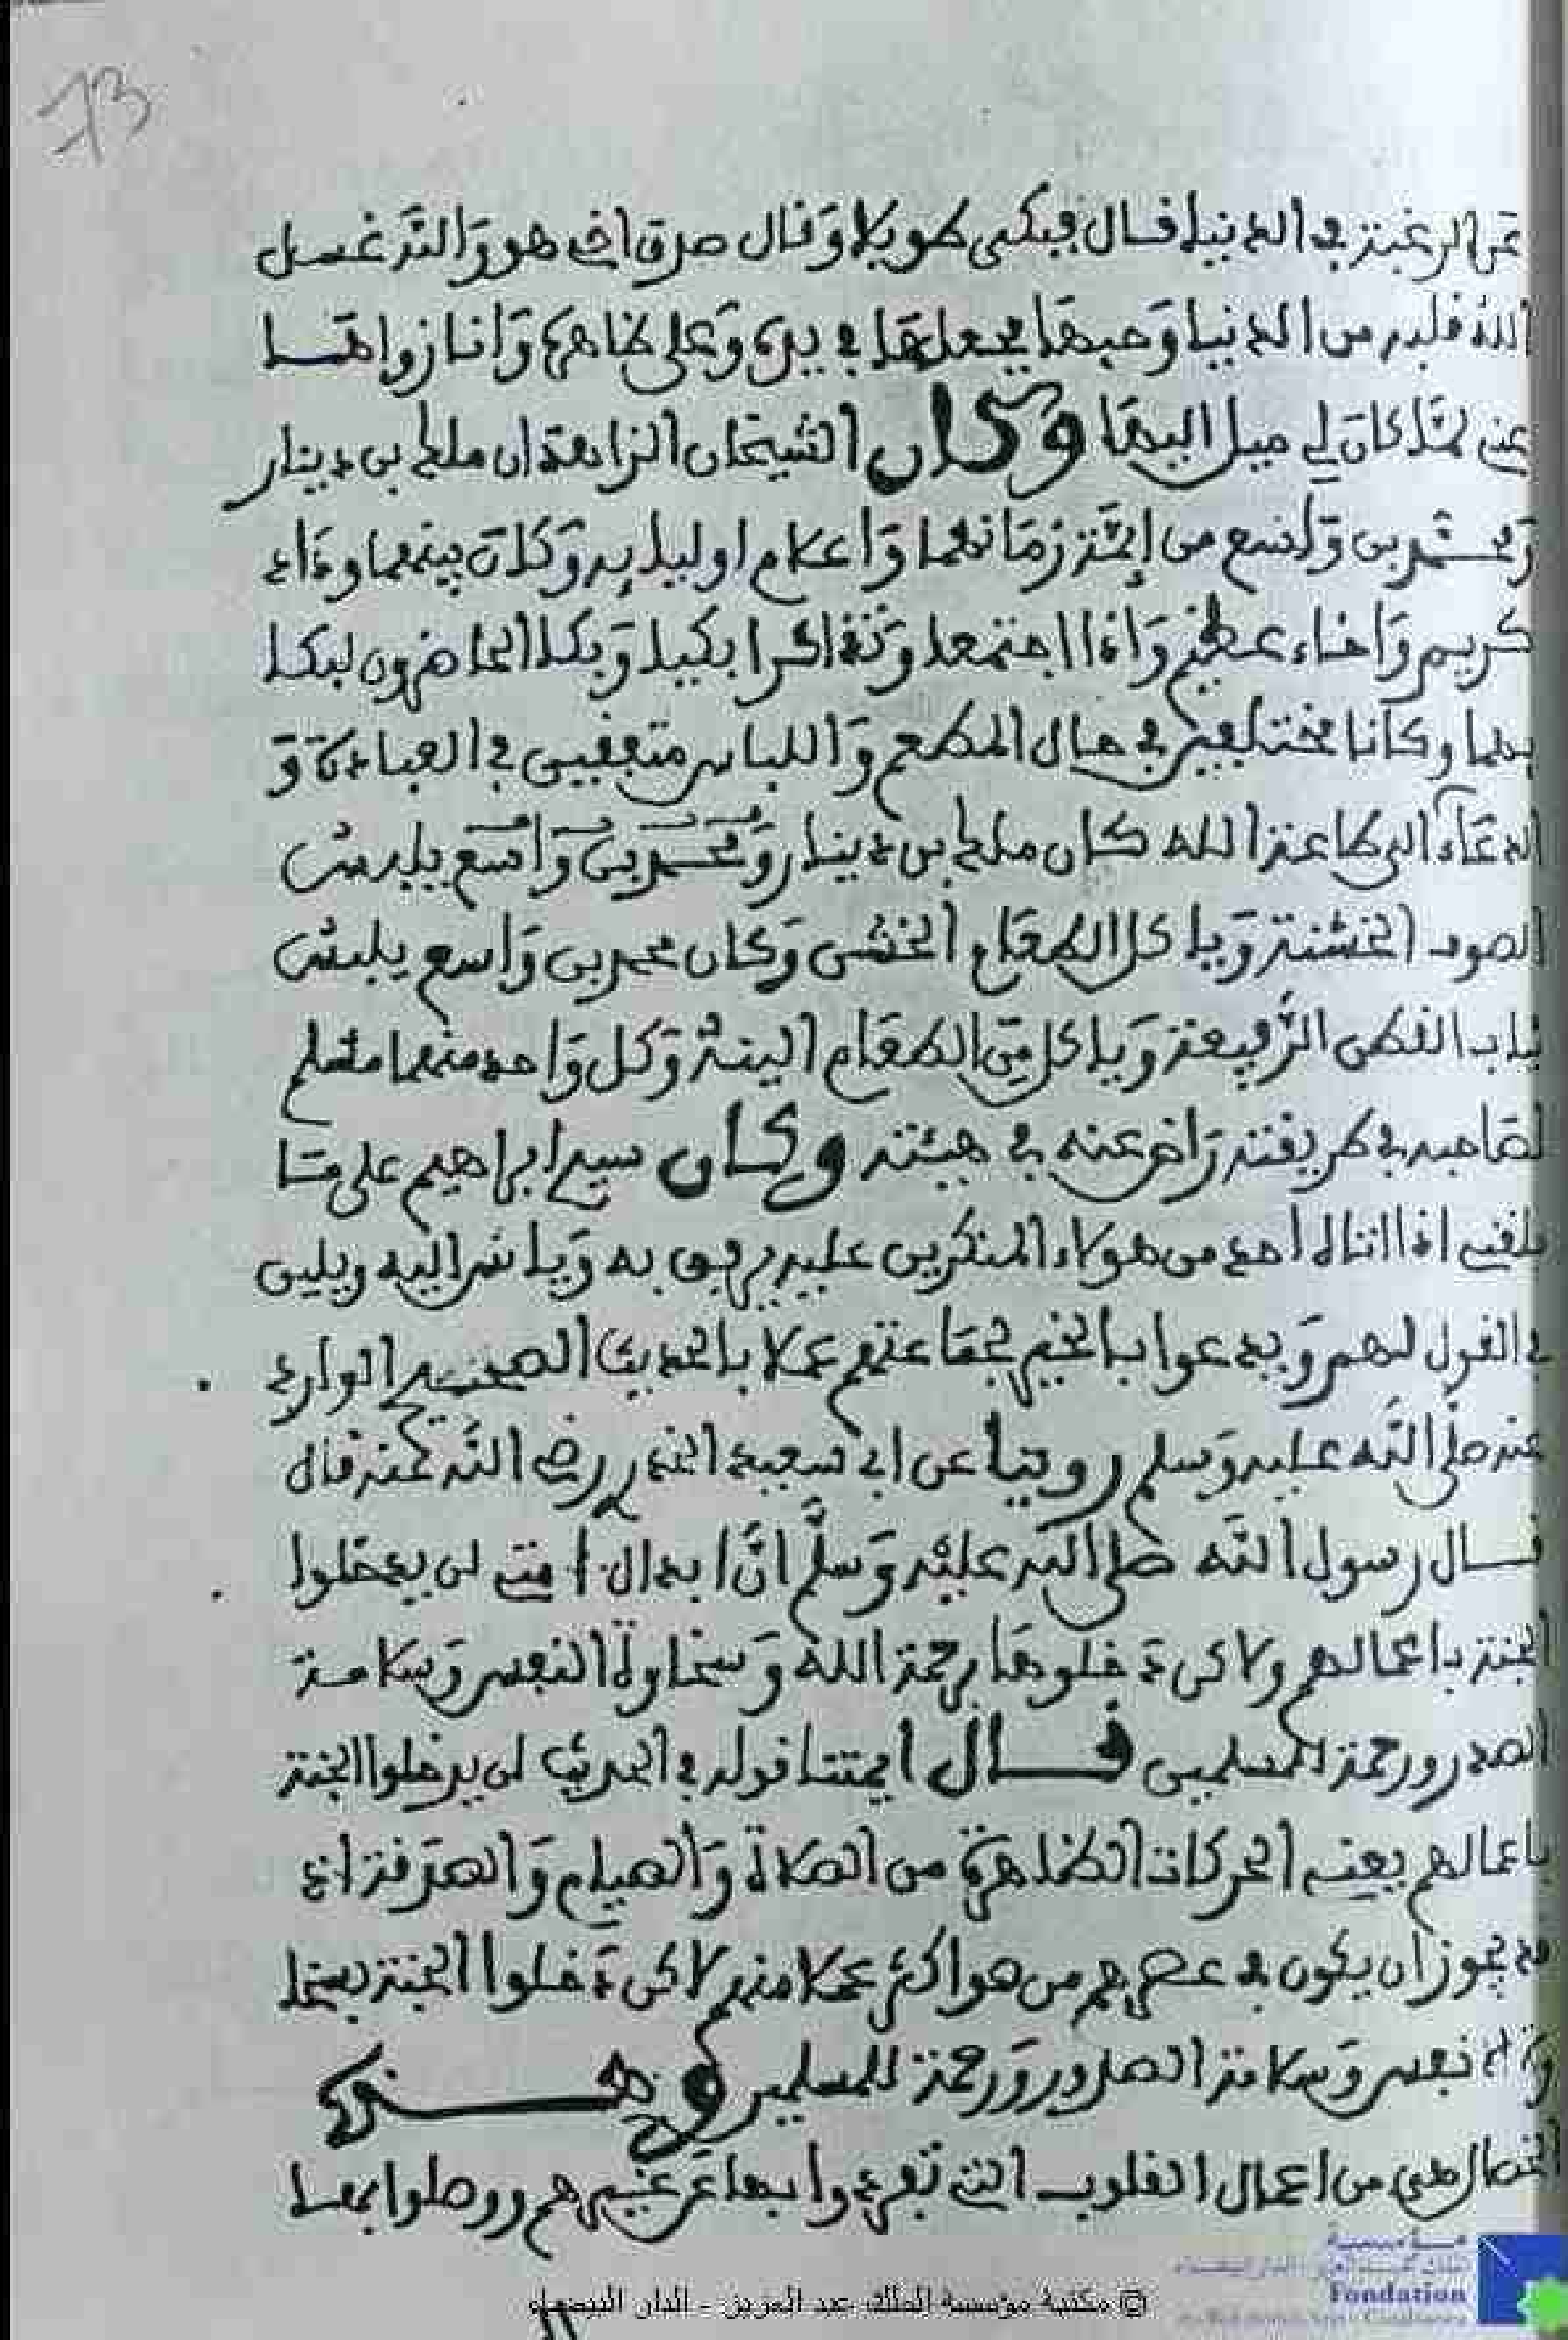 73
عن الرغبة في الدنيا فقال فبكى طويلا وقال صدق اخي هو والله غسل
الله قلبه من الدنيا وحبها يجعلها في يده وعلى ظاهره وانا زواها
عني لما كان لي ميل اليها وكان الشيخان الزاهدان ملك بن دينار
ومحمد بن واسع من ايمة زمانهما واعلام اوليايه وكان بينهما وداد
كريم واخاء عظيم واذا اجتمعا وتذاكرا بكيا وبكا الحاضرون لبكا
يهما وكانا مختلفين في حال المطعم واللباس متفقين في العبادة و
الدعاء الى طاعة الله كان ملك بن دينار ومحمد بن واسع يلبس
الصوف الخشنة وياكل الطعام الخشن وكان محمد بن واسع يلبس
ثياب القطن الرفيعة وياكل من الطعام الينة وكل واحد منهما مسلم
لصاحبه في طريقته راض عنه في هيئته وكان سيدي ابراهيم على مثا
بلقني اذا اتاه احد من هولاء المنكرين عليه يرفق به ويا نس اليه ويلين
في القول لهم ويدعوا بالخير لجماعتهم عملا بالحديث الصحيح الوارد
عنه صلى الله عليه وسلم روينا عن ابي سعيد الخدري رضي الله عنه قال
قال رسول الله صلى الله عليه وسلم ان ابدال امتي لن يدخلوا
الجنة باعمالهم ولاكن دخلوها برحمة الله وسخاوة النفس وسلامة
الصدر ورحمة المسلمين قال ايمتنا قوله في الحديث لن يدخلوا الجنة
باعمالهم يعني الحركات الظاهرة من الصلاة والصيام والصدقة اذ
قد يجوز ان يكون في عصرهم من هو اكثر عملا منهم لاكن دخلوا الجنة بسخا
وة النفس وسلامة الصدور ورحمة للمسلمين وهذه
الخصال هي من اعمال القلوب التي تفردوا بها عن غيرهم ووصلوا بها
© مكتبة مؤسسة الملك عبد العزيز - الدار البيضاء
مؤسسة
Fondation